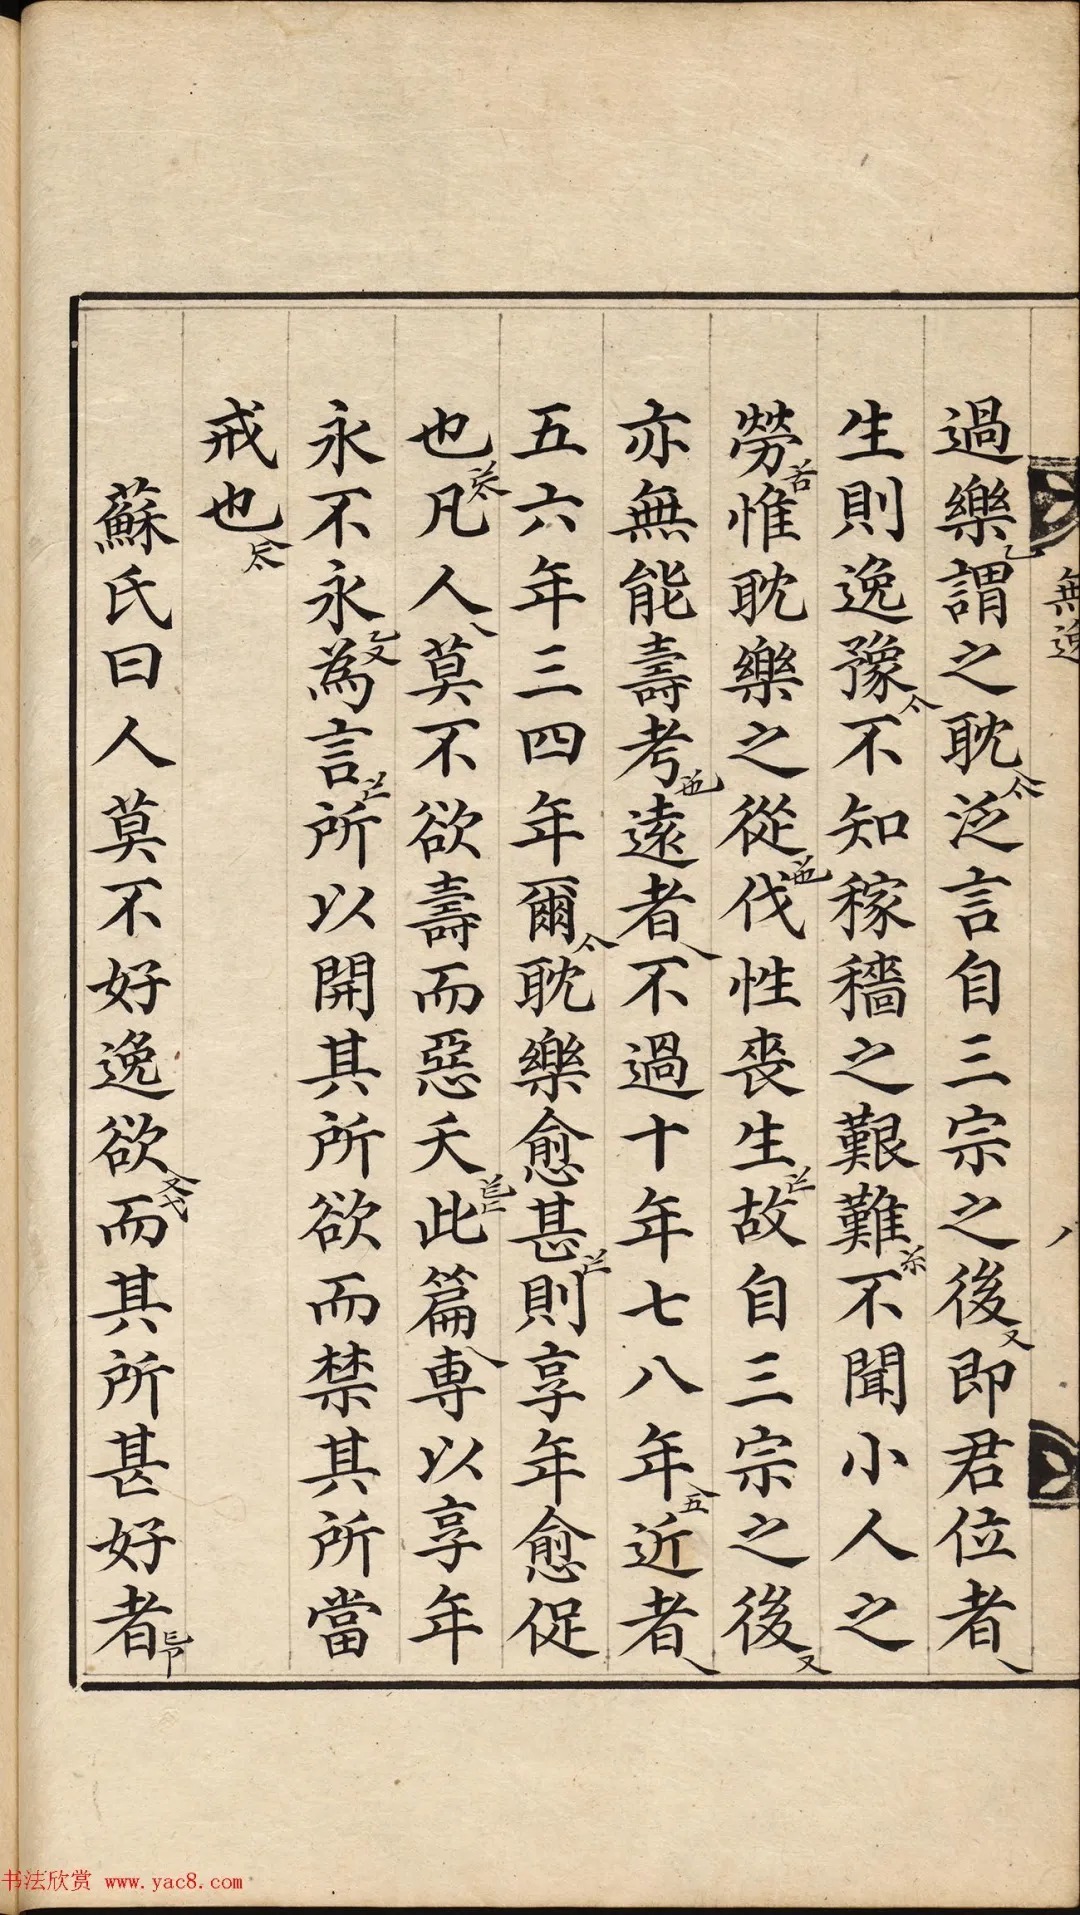 無逸
過樂謂之耽泛言自三宗之後即君位者
生則逸豫不知稼穡之艱難不聞小人之
勞惟耽樂之從伐性喪生故自三宗之後
亦無能壽考遠者不過十年七八年近者
五六年三四年爾耽樂愈甚則享年愈促
也凡人莫不欲壽而惡夭此篇専以享年
永不永為言所以開其所欲而禁其所當
戒也
蘇氏曰人莫不好逸欲而其所甚好者
书法欣赏 www.yac8.com